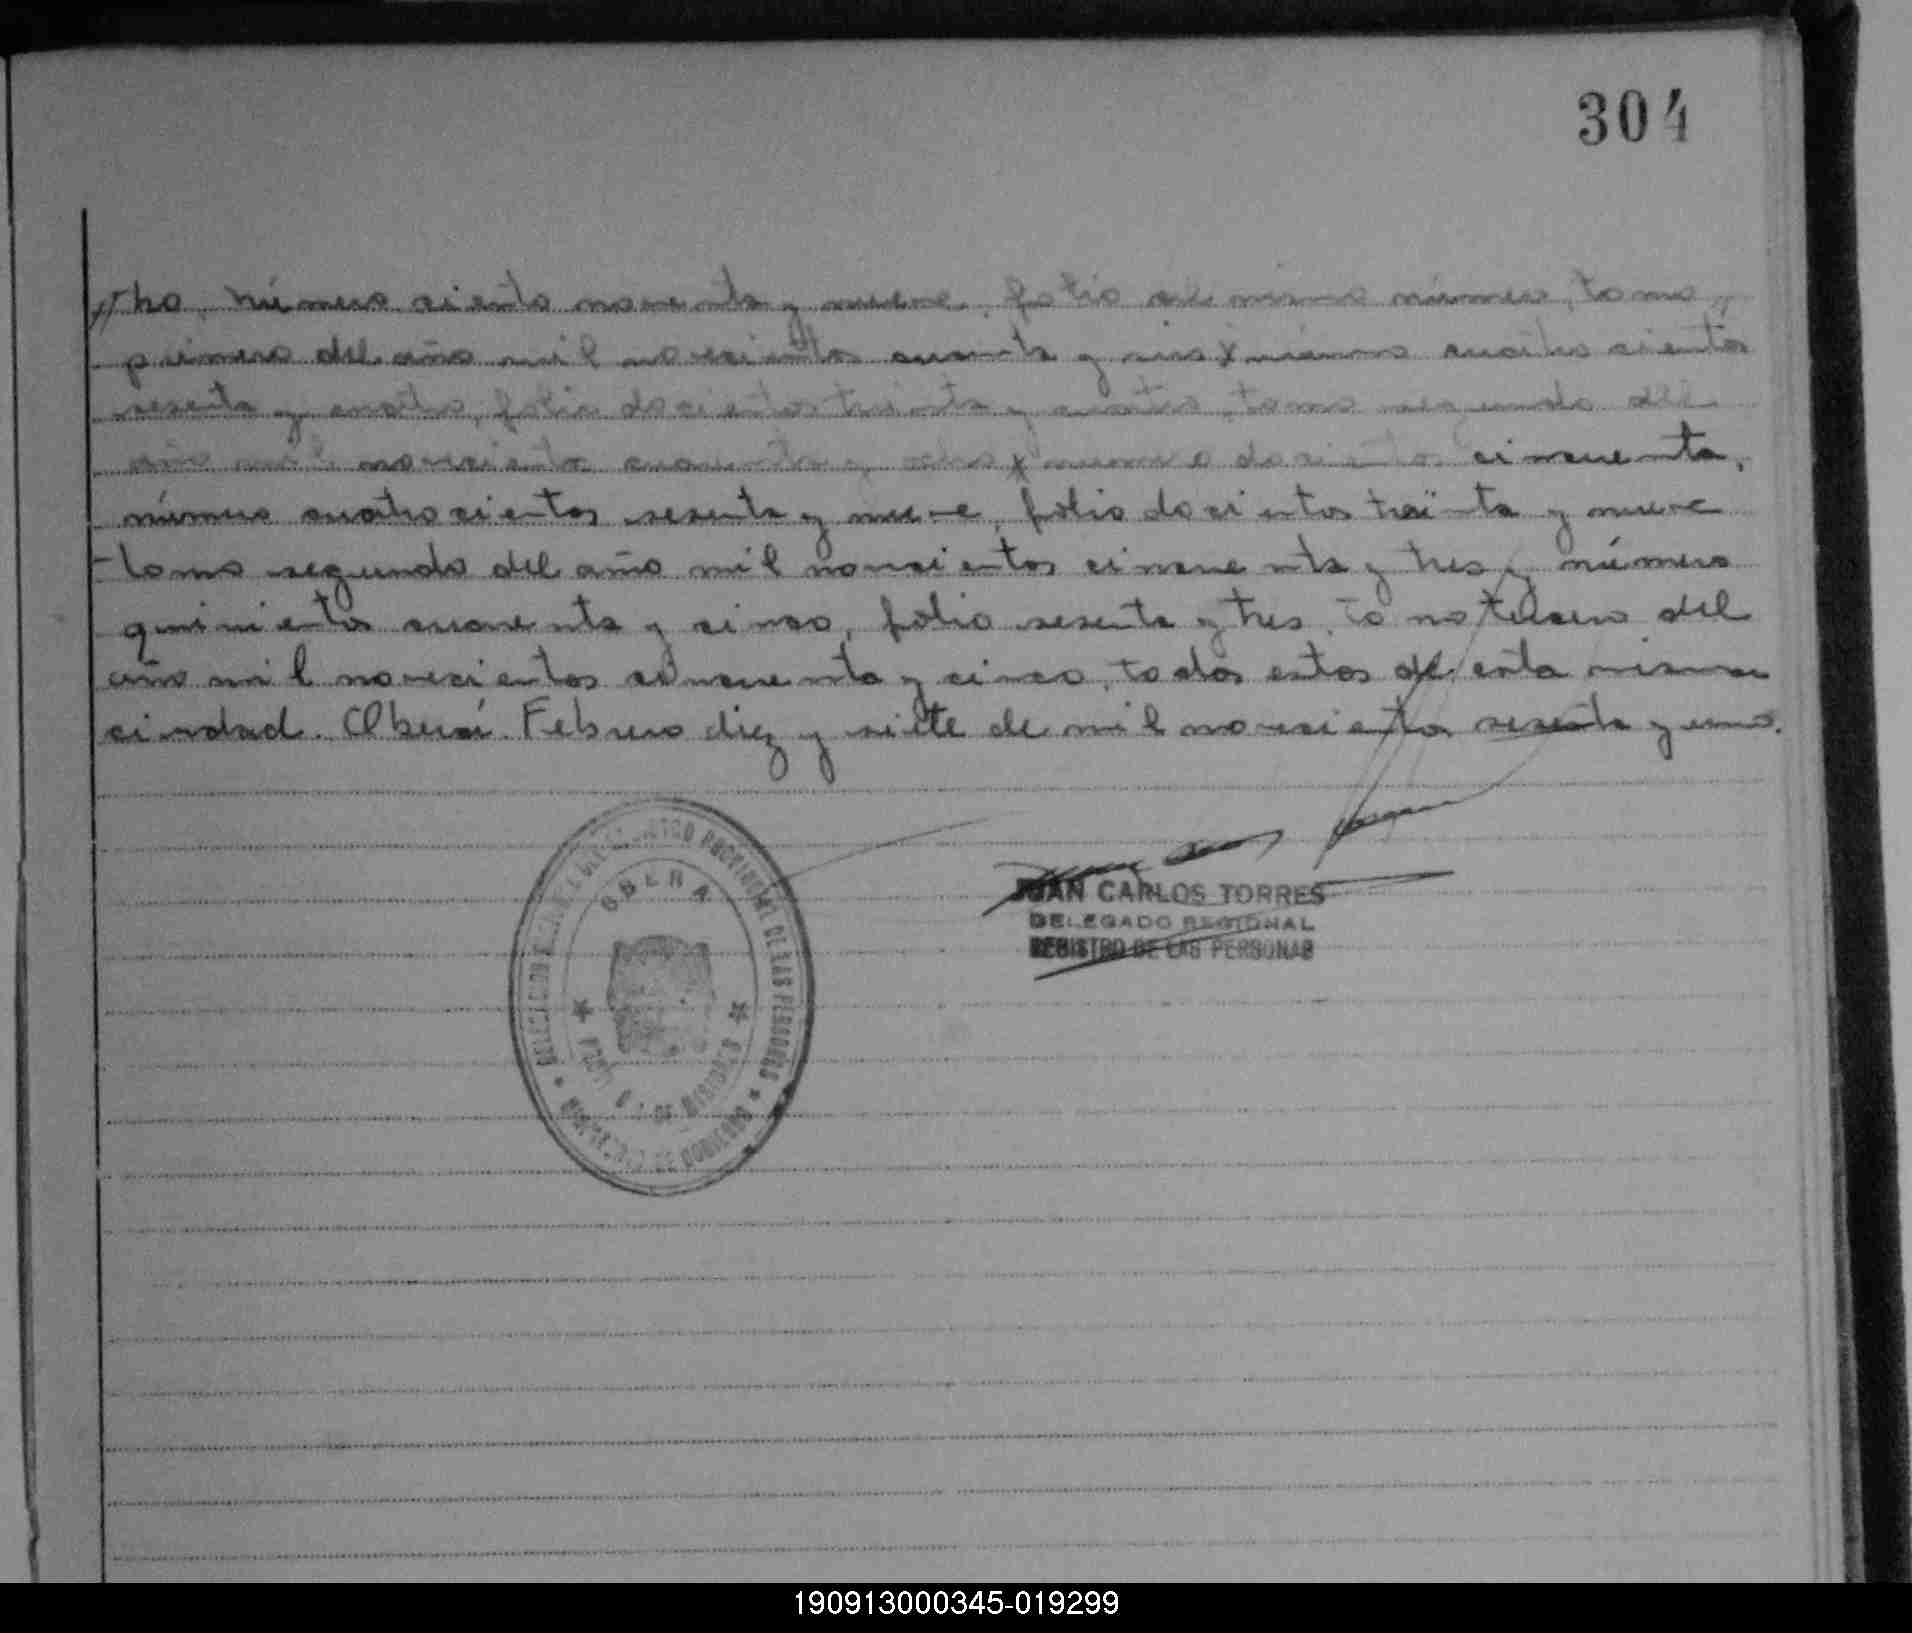 304
//cho, número ciento noventa y nueve, folio del mismo número, tomo
primero del año mil novecientos cuarenta y seis x número cuatrocientos
sesenta y cuatro, folio docientos treinta y cuatro, tomo segundo del
año mil novecientos cuarenta y ocho x número docientos cincuenta,
número cuatrocientos sesenta y nueve, folio docientos treinta y nueve
tomo segundo del año mil novecientos cincuenta y tres y número
quinientos cuarenta y cinco, folio sesenta y tres, tomo tercero del
año mil novecientos cincuenta y cinco, todos estos de esta misma
ciudad. Oberá. Febrero diez y siete de mil novecientos sesenta y uno.
REGISTRO PROVINCIAL DE LAS PERSONAS
OBERA
DE MISIONES
MINISTERIO DE GOBIERNO
JUAN CARLOS TORRES
DELEGADO REGIONAL
REGISTRO DE LAS PERSONAS
190913000345-019299